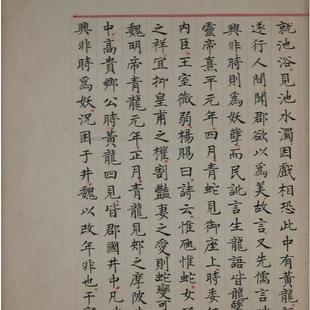 就池浴見池水濁因戲相恐此中有黃龍語
遂行人間聞郡欲以為美故言又先儒言
興非時則為妖孽而民訛言生龍語皆龍孽
靈帝熹平元年四月青蛇見御座上時委任
内臣王室微弱楊賜曰詩云惟虺惟蛇女子
之祥宜抑皇甫之權割豔妻之愛則蛇變可
魏明帝青龍元年正月青龍見郟之摩陂井
中高貴鄉公時黃龍四見皆郡國井中凡
興非時為妖況困于井魏以改年非也干寶